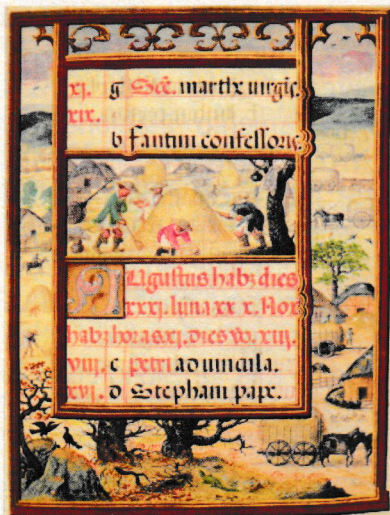 xj. g Scē. marthe uirgis.
xix.
b fantim confessoris.
Augustus habꝫ dies
xxxj. luna xx x. Nox
habꝫ horas. xj. dies vo. xiij.
viij. c petri ad uincula.
xvj. d Stephani pape.